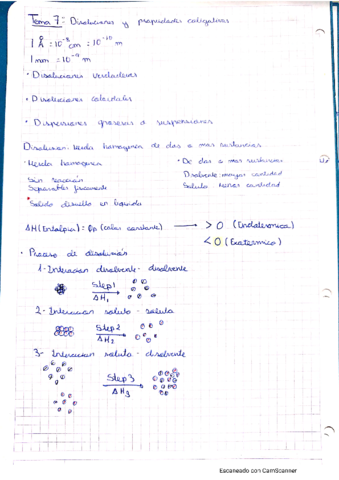 Tema 7: Disoluciones y propiedades coligativas
1 Å = 10⁻⁸ cm = 10⁻¹⁰ m
1 nm = 10⁻⁹ m
• Disoluciones verdaderas
• Disoluciones coloidales
• Dispersiones groseras o suspensiones
Disolucion: Mezcla homogenea de dos o mas sustancias
• Mezcla homogenea
• De dos o mas sustancias
Sin reacción
Disolvente: mayor cantidad
Separables fisicamente
Soluto: menor cantidad
• Solido disuelto en liquido
ΔH (Entalpia) = Qp (calor constante) → > 0 (Endotermica)
< 0 (Exotermico)
• Proceso de disolución
1- Interacion disolvente - disolvente
Step 1
ΔH₁
2- Interacion soluto - soluto
Step 2
ΔH₂
3- Interacion soluto - disolvente
Step 3
ΔH₃
Escaneado con CamScanner